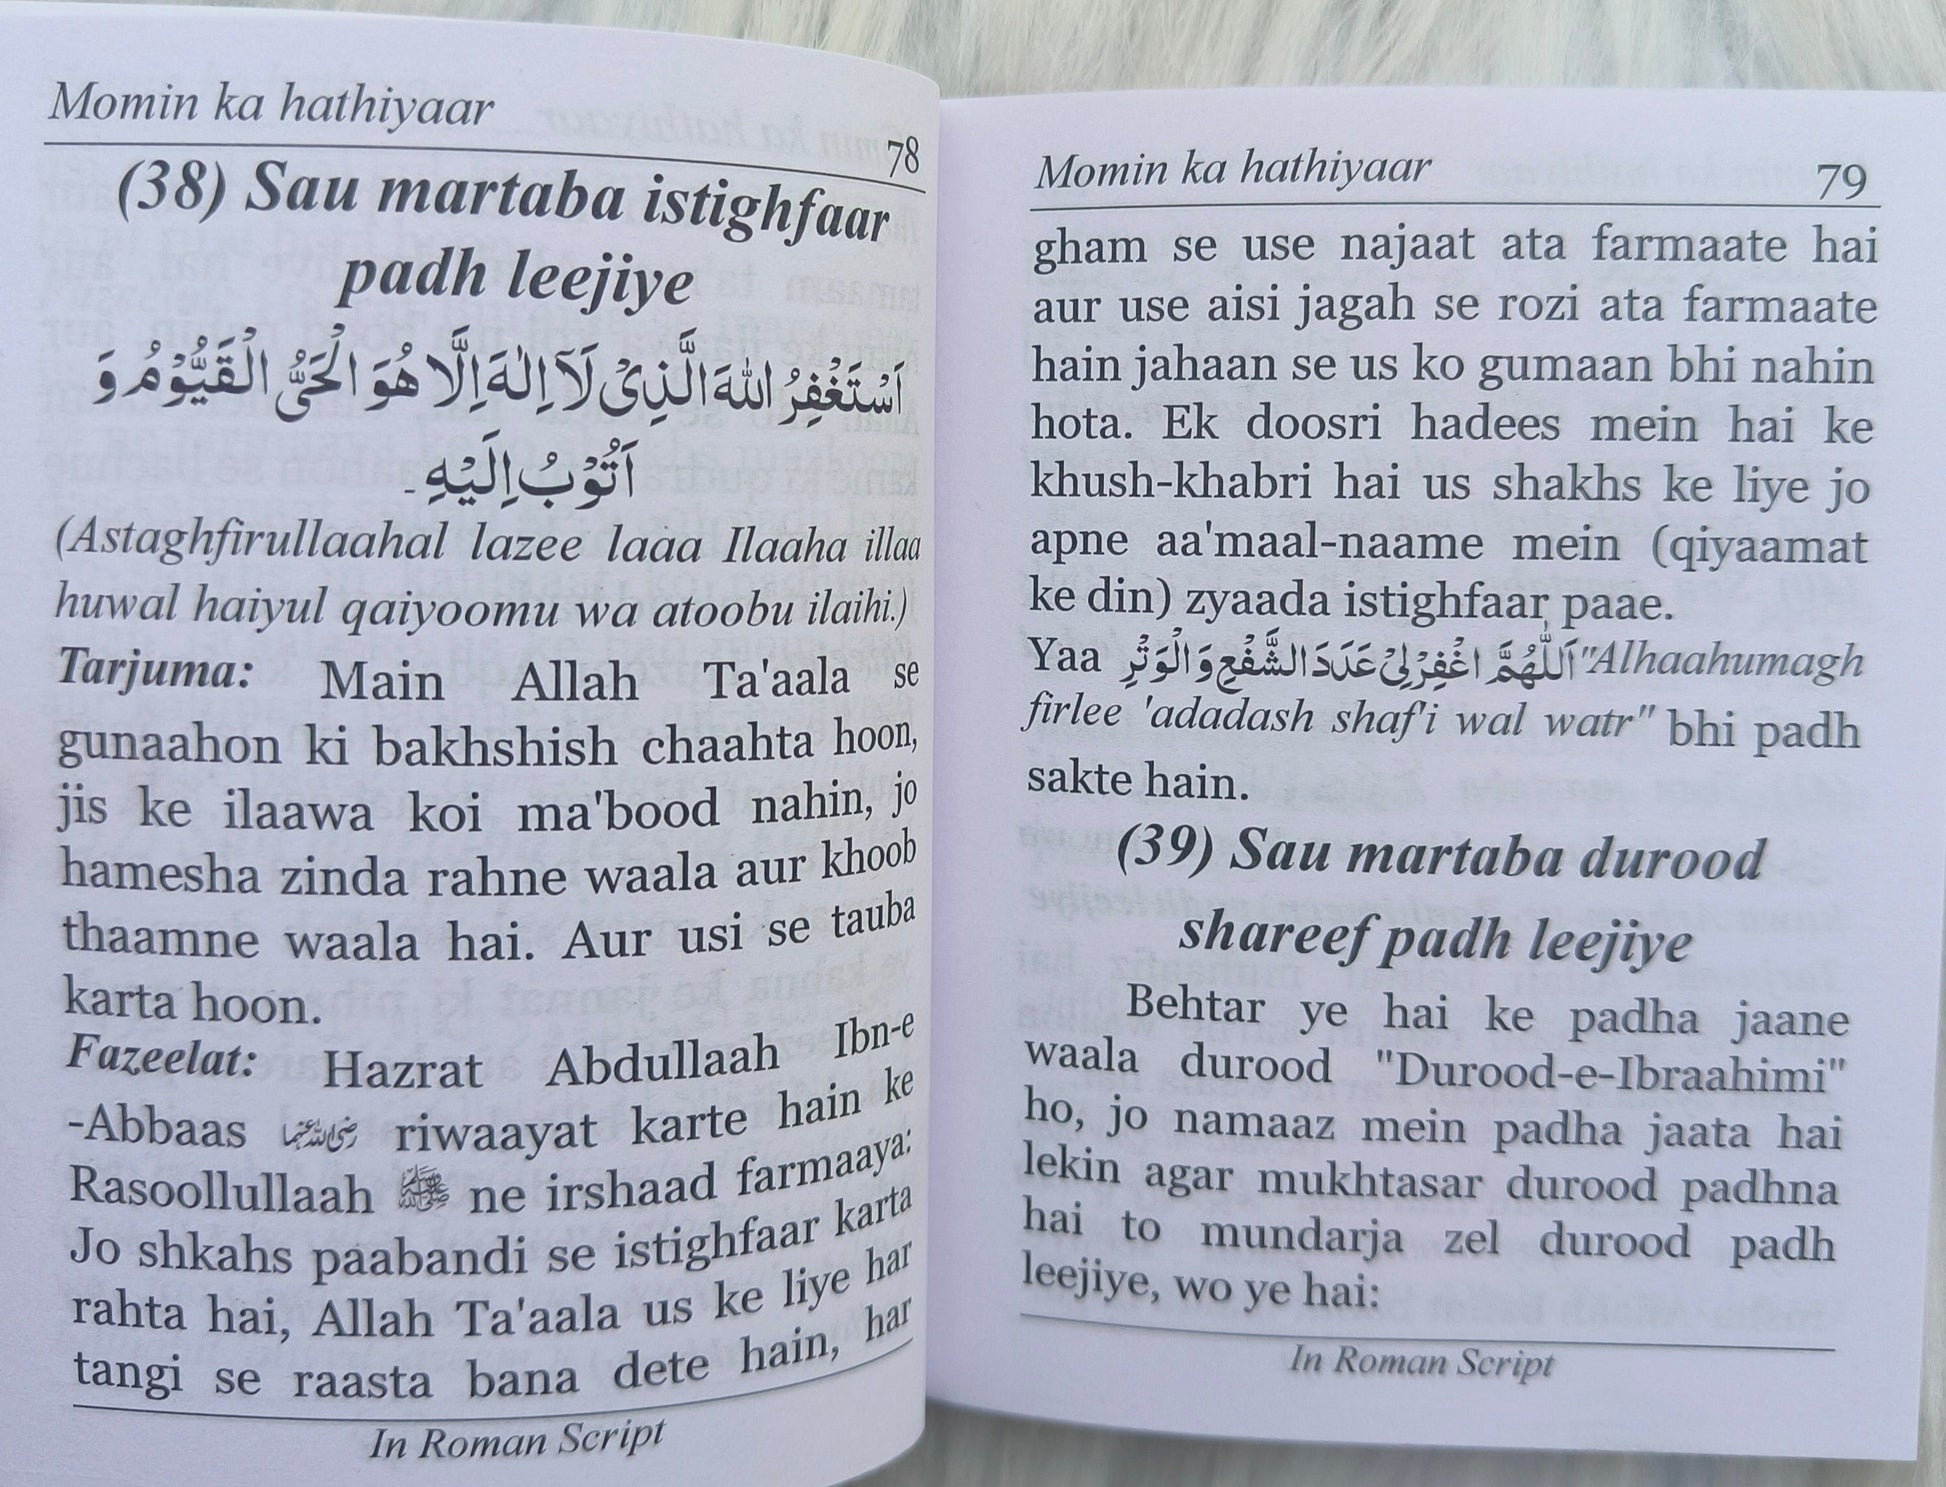 Momin ka hathiyaar
78
(38) Sau martaba istighfaar
padh leejiye
اَسْتَغْفِرُ اللهَ الَّذِىْ لَآ اِلٰهَ اِلَّا هُوَ الْحَىُّ الْقَيُّوْمُ وَ
اَتُوْبُ اِلَيْهِ۔
(Astaghfirullaahal lazee laaa Ilaaha illaa
huwal haiyul qaiyoomu wa atoobu ilaihi.)
Tarjuma: Main Allah Ta'aala se
gunaahon ki bakhshish chaahta hoon,
jis ke ilaawa koi ma'bood nahin, jo
hamesha zinda rahne waala aur khoob
thaamne waala hai. Aur usi se tauba
karta hoon.
Fazeelat: Hazrat Abdullaah Ibn-e
-Abbaas رضی اللہ عنہما riwaayat karte hain ke
Rasoollullaah ﷺ ne irshaad farmaaya:
Jo shkahs paabandi se istighfaar karta
rahta hai, Allah Ta'aala us ke liye har
tangi se raasta bana dete hain, har
In Roman Script
Momin ka hathiyaar
79
gham se use najaat ata farmaate hai
aur use aisi jagah se rozi ata farmaate
hain jahaan se us ko gumaan bhi nahin
hota. Ek doosri hadees mein hai ke
khush-khabri hai us shakhs ke liye jo
apne aa'maal-naame mein (qiyaamat
ke din) zyaada istighfaar paae.
Yaa اَللّٰهُمَّ اغْفِرْلِىْ عَدَدَ الشَّفْعِ وَالْوَتْرِ "Alhaahumagh
firlee 'adadash shaf'i wal watr" bhi padh
sakte hain.
(39) Sau martaba durood
shareef padh leejiye
Behtar ye hai ke padha jaane
waala durood "Durood-e-Ibraahimi"
ho, jo namaaz mein padha jaata hai
lekin agar mukhtasar durood padhna
hai to mundarja zel durood padh
leejiye, wo ye hai:
In Roman Script